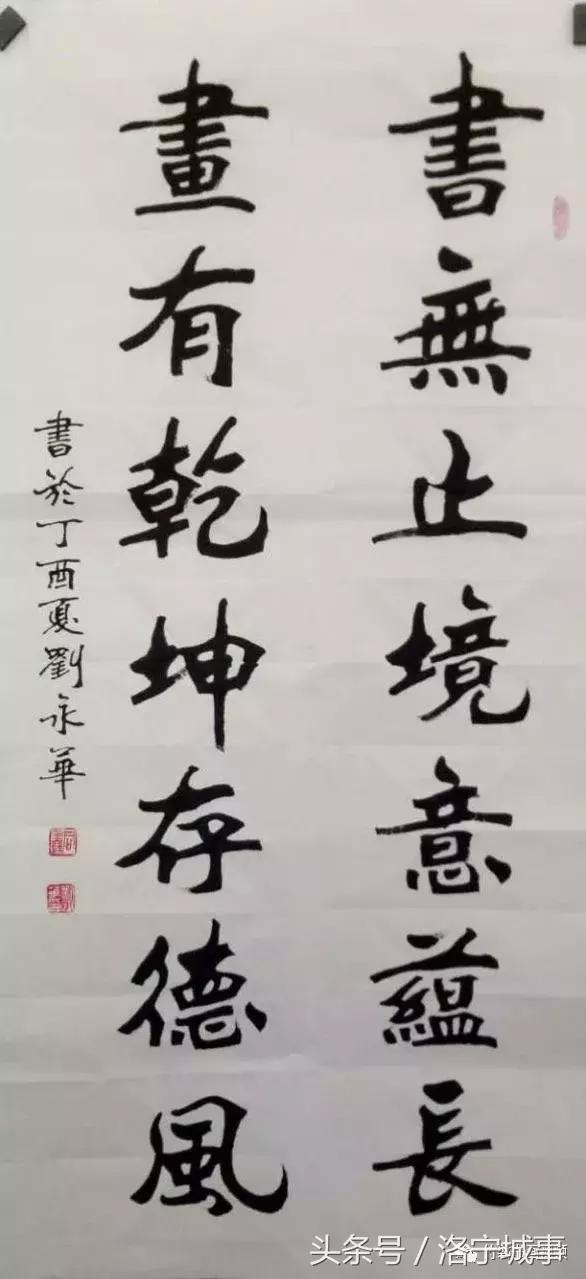 書無止境意蘊長
畫有乾坤存德風
書於丁酉夏劉永華
头条号／洛宁城事